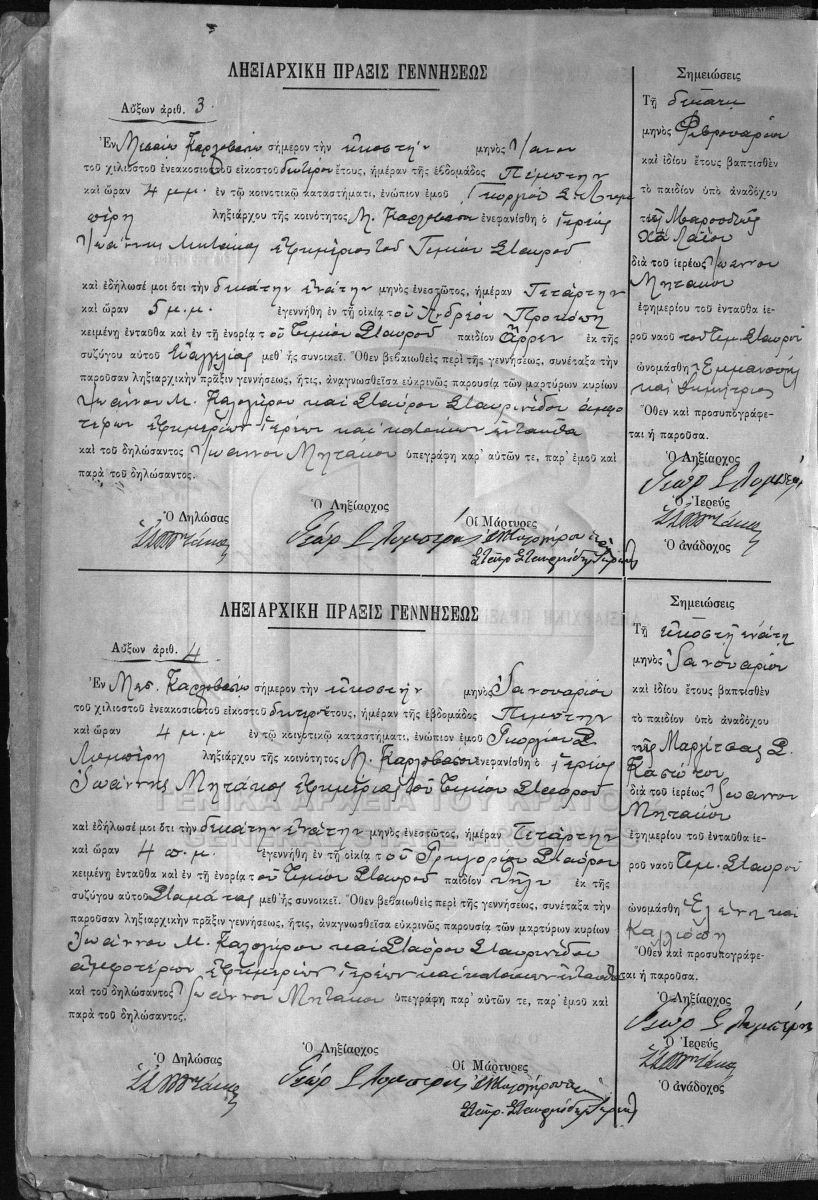 ΛΗΞΙΑΡΧΙΚΗ ΠΡΑΞΙΣ ΓΕΝΝΗΣΕΩΣ
Αὔξων ἀριθ. 3.
Ἐν Μεσαίῳ Καρλοβασίῳ σήμερον τὴν εἰκοστὴν μηνὸς
τοῦ χιλιοστοῦ ἐνεακοσιοστοῦ εἰκοστοῦ δευτέρου ἔτους, ἡμέραν τῆς ἑβδομάδος Πέμπτην
καὶ ὥραν 4 μ.μ. ἐν τῷ κοινοτικῷ καταστήματι, ἐνώπιον ἐμοῦ Γεωργίου Σ. Λυμπέρη
ληξιάρχου τῆς κοινότητος Μ. Καρλοβασίου ἐνεφανίσθη ὁ ἱερεὺς
Ἰωάννης Μητάκος ἐφημέριος τοῦ Τιμίου Σταυροῦ
καὶ ἐδήλωσέ μοι ὅτι τὴν δεκάτην ἐνάτην μηνὸς ἐνεστῶτος, ἡμέραν Τετάρτην
καὶ ὥραν 5 μ.μ. ἐγεννήθη ἐν τῇ οἰκίᾳ τοῦ Ἀνδρέου
κειμένῃ ἐνταῦθα καὶ ἐν τῇ ἐνορίᾳ τοῦ Τιμίου Σταυροῦ παιδίον ἄρρεν ἐκ τῆς
συζύγου αὐτοῦ Εὐαγγελίας μεθ' ἧς συνοικεῖ. Ὅθεν βεβαιωθεὶς περὶ τῆς γεννήσεως, συνέταξα τὴν
παροῦσαν ληξιαρχικὴν πρᾶξιν γεννήσεως, ἥτις, ἀναγνωσθεῖσα εὐκρινῶς παρουσίᾳ τῶν μαρτύρων κυρίων
Ἰωάννου Μ. Καλογήρου καὶ Σταύρου Σταυρινίδου ἀμφο
τέρων ἐφημερίων ἱερέων καὶ κατοίκων ἐνταῦθα
καὶ τοῦ δηλώσαντος Ἰωάννου Μητάκου ὑπεγράφη παρ' αὐτῶν τε, παρ' ἐμοῦ καὶ
παρὰ τοῦ δηλώσαντος.
Ὁ Δηλώσας
Ὁ Ληξίαρχος
Οἱ Μάρτυρες
Γεώρ Σ Λυμπέρης
Σημειώσεις
Τῇ δεκάτῃ
μηνὸς Φεβρουαρίου
καὶ ἰδίου ἔτους βαπτισθὲν
τὸ παιδίον ὑπὸ ἀναδόχου
διὰ τοῦ ἱερέως Ἰωάννου
Μητάκου
ἐφημερίου τοῦ ἐνταῦθα ἱε-
ροῦ ναοῦ τοῦ Τιμ. Σταυροῦ
ὠνομάσθη Ἐμμανουὴλ
καὶ Δημήτριος
Ὅθεν καὶ προσυπογράφε-
ται ἡ παροῦσα.
Ὁ Ληξίαρχος
Γεώρ Σ Λυμπέρης
Ὁ Ἱερεύς
Ὁ ἀνάδοχος
ΛΗΞΙΑΡΧΙΚΗ ΠΡΑΞΙΣ ΓΕΝΝΗΣΕΩΣ
Αὔξων ἀριθ. 4
Ἐν Μεσ. Καρλοβασίῳ σήμερον τὴν εἰκοστὴν μηνὸς Ἰανουαρίου
τοῦ χιλιοστοῦ ἐνεακοσιοστοῦ εἰκοστοῦ δευτέρου ἔτους, ἡμέραν τῆς ἑβδομάδος Πέμπτην
καὶ ὥραν 4 μ.μ ἐν τῷ κοινοτικῷ καταστήματι, ἐνώπιον ἐμοῦ Γεωργίου Σ.
Λυμπέρη ληξιάρχου τῆς κοινότητος Μ. Καρλοβασίου ἐνεφανίσθη ὁ ἱερεὺς
Ἰωάννης Μητάκος ἐφημέριος τοῦ Τιμίου Σταυροῦ
ΓΕΝΙΚΑ ΑΡΧΕΙΑ ΤΟΥ ΚΡΑΤΟΥΣ
καὶ ἐδήλωσέ μοι ὅτι τὴν δεκάτην ἐνάτην μηνὸς ἐνεστῶτος, ἡμέραν Τετάρτην
καὶ ὥραν 4 π.μ. ἐγεννήθη ἐν τῇ οἰκίᾳ τοῦ Γρηγορίου Σταύρου
κειμένῃ ἐνταῦθα καὶ ἐν τῇ ἐνορίᾳ τοῦ Τιμίου Σταυροῦ παιδίον θῆλυ ἐκ τῆς
συζύγου αὐτοῦ Σταμάτας μεθ' ἧς συνοικεῖ. Ὅθεν βεβαιωθεὶς περὶ τῆς γεννήσεως, συνέταξα τὴν
παροῦσαν ληξιαρχικὴν πρᾶξιν γεννήσεως, ἥτις, ἀναγνωσθεῖσα εὐκρινῶς παρουσίᾳ τῶν μαρτύρων κυρίων
Ἰωάννου Μ. Καλογήρου καὶ Σταύρου Σταυρινίδου
ἀμφοτέρων ἐφημερίων ἱερέων καὶ κατοίκων ἐνταῦθα
καὶ τοῦ δηλώσαντος Ἰωάννου Μητάκου ὑπεγράφη παρ' αὐτῶν τε, παρ' ἐμοῦ καὶ
παρὰ τοῦ δηλώσαντος.
Ὁ Δηλώσας
Ὁ Ληξίαρχος
Οἱ Μάρτυρες
Γεώρ Σ Λυμπέρης
Σημειώσεις
Τῇ εἰκοστῇ ἐνάτῃ
μηνὸς Ἰανουαρίου
καὶ ἰδίου ἔτους βαπτισθὲν
τὸ παιδίον ὑπὸ ἀναδόχου
τῆς Μαργίτσας Σ.
διὰ τοῦ ἱερέως Ἰωάννου
Μητάκου
ἐφημερίου τοῦ ἐνταῦθα ἱε-
ροῦ ναοῦ Τιμ. Σταυροῦ
ὠνομάσθη Ἑλένη καὶ
Καλλιόπη
Ὅθεν καὶ προσυπογράφε-
ται ἡ παροῦσα.
Ὁ Ληξίαρχος
Γεώρ Σ Λυμπέρης
Ὁ Ἱερεύς
Ὁ ἀνάδοχος